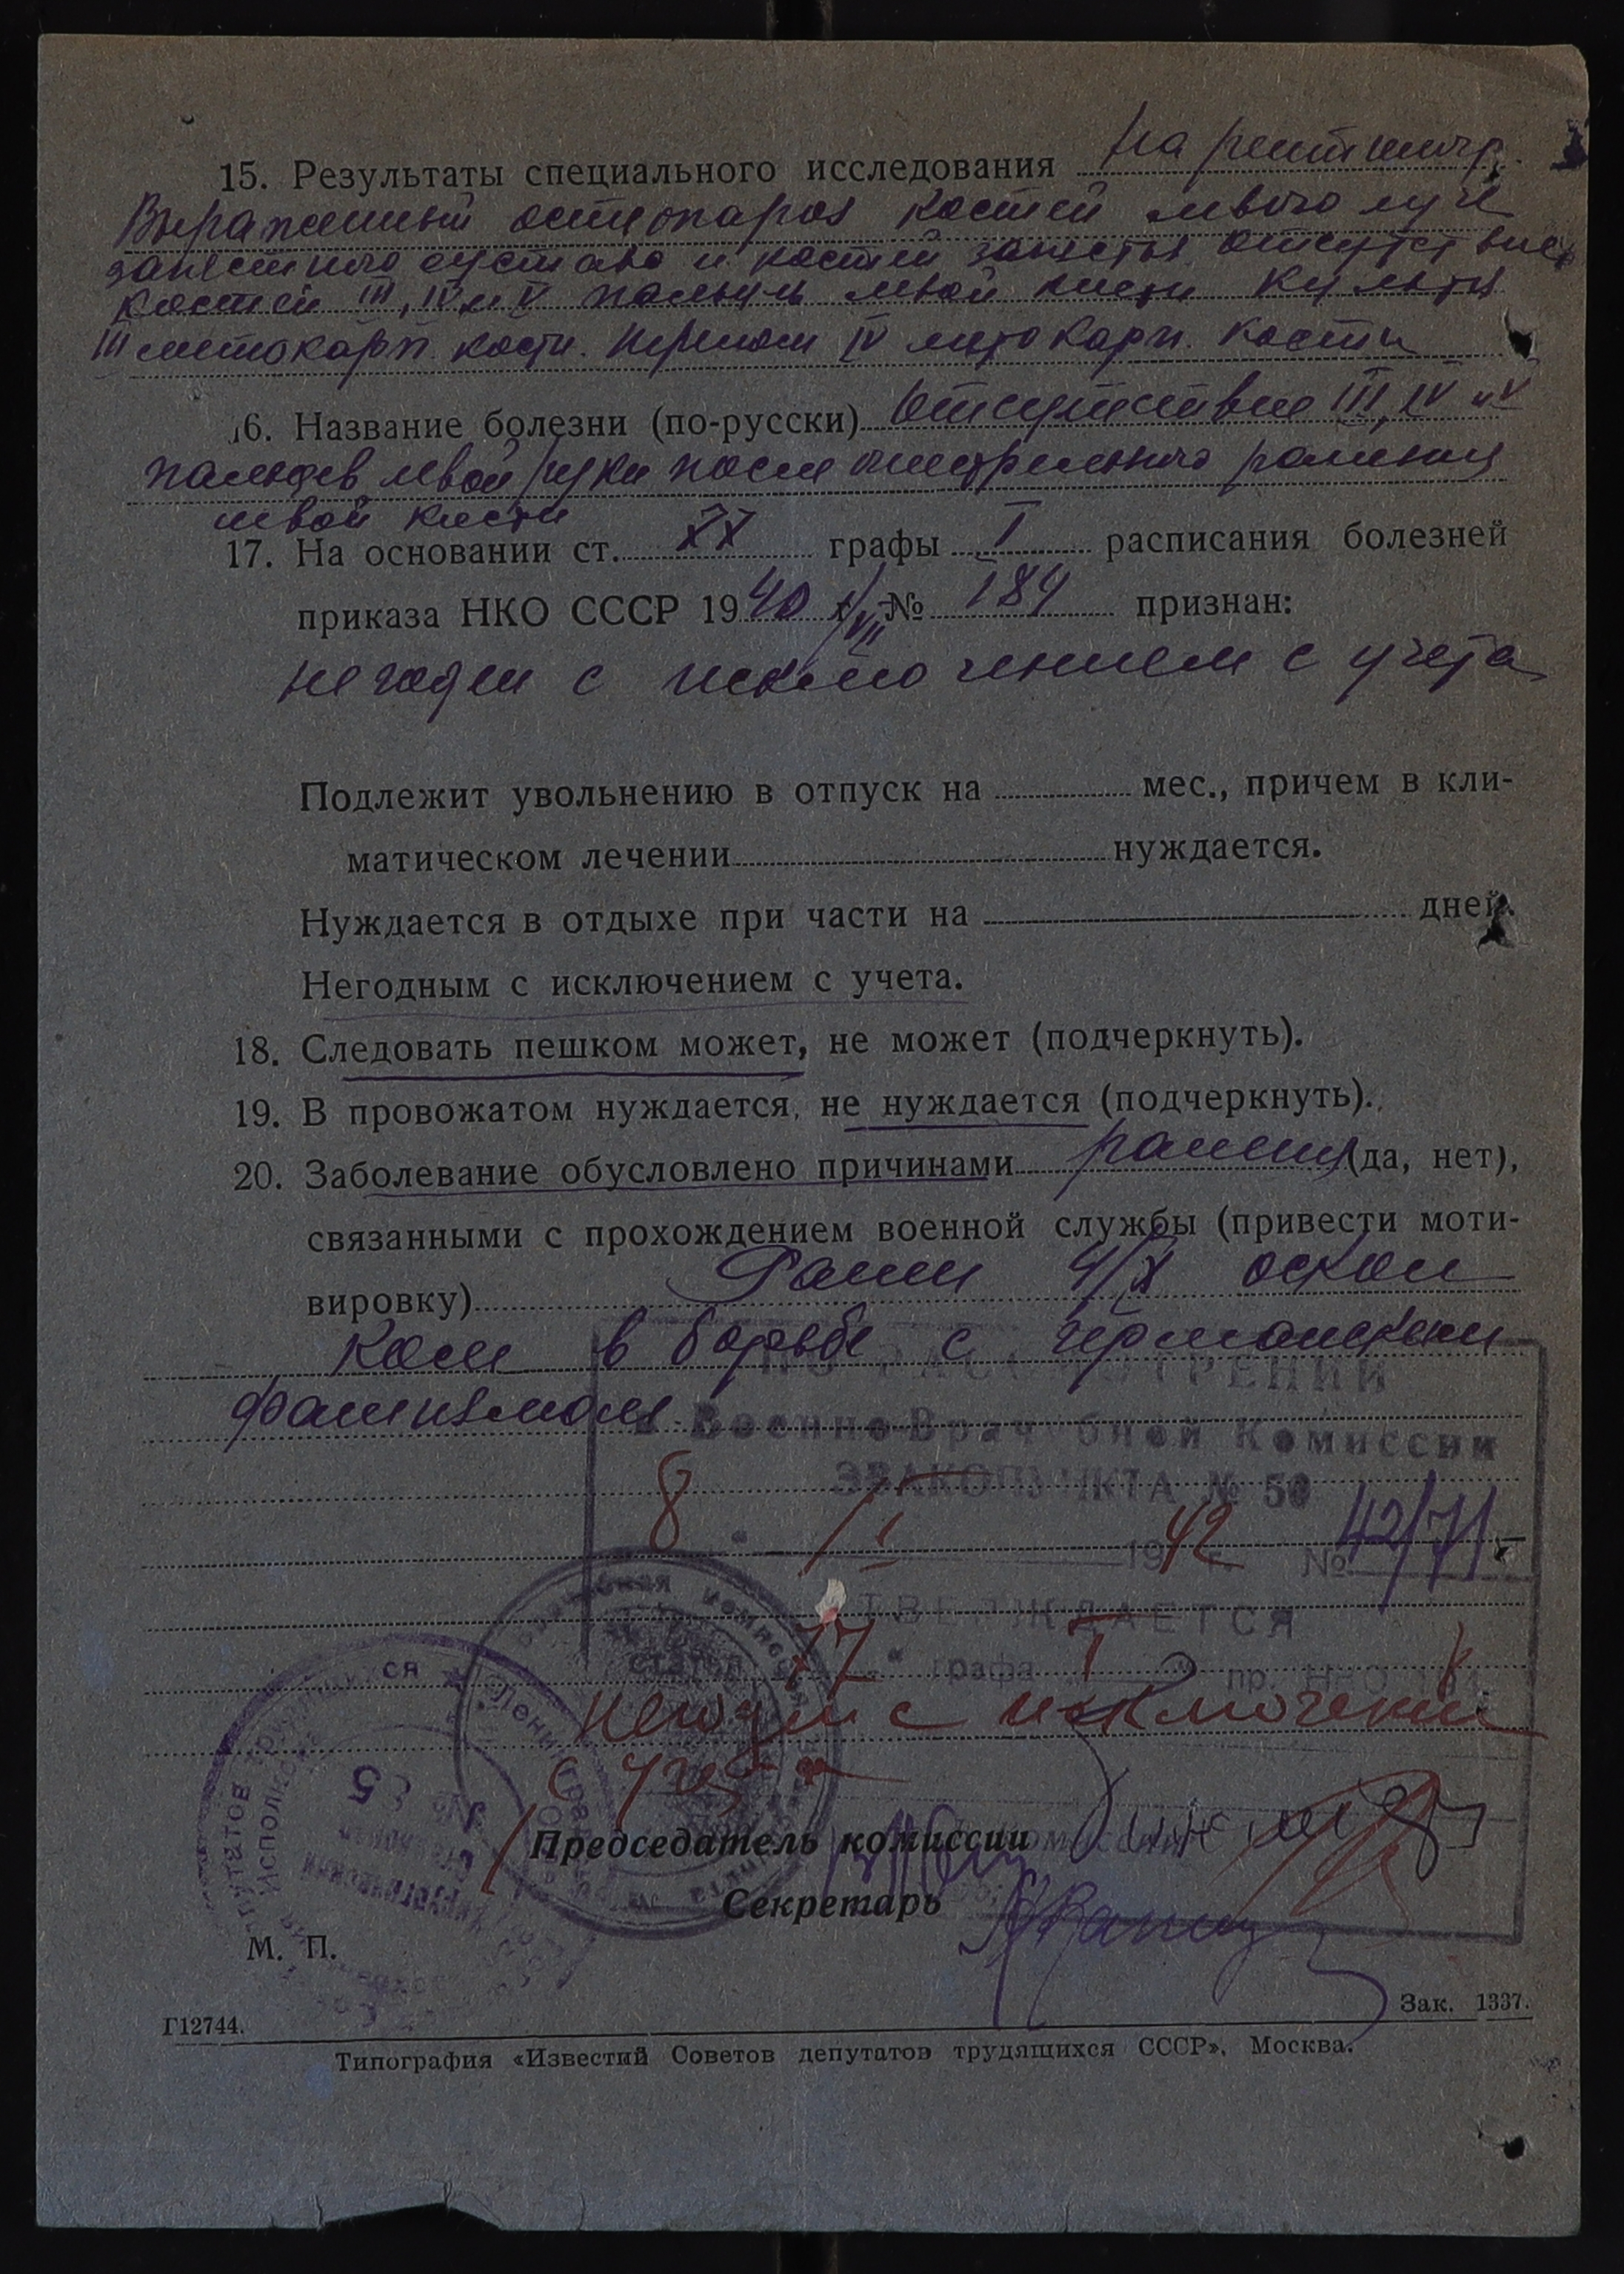 15. Результаты специального исследования На рентгеногр.
Выраженный остеопороз костей левого луче
запястного сустава и костей запястья отсутствие
костей III, IV и V пальцев левой кисти Культя
III метокарп. кости. Перелом IV метокарп. кости
16. Название болезни (по-русски) Отсутствие III, IV и V
пальцев левой руки после огнестрельного ранения
левой кисти
17. На основании ст. 77 графы I расписания болезней
приказа НКО СССР 1940 г. № 184 признан:
негоден с исключением с учета
Подлежит увольнению в отпуск на мес., причем в кли-
матическом лечении нуждается.
Нуждается в отдыхе при части на дней.
Негодным с исключением с учета.
18. Следовать пешком может, не может (подчеркнуть).
19. В провожатом нуждается, не нуждается (подчеркнуть).
20. Заболевание обусловлено причинами ранения (да, нет),
связанными с прохождением военной службы (привести моти-
вировку) Ранен 4/X оскол
ком в борьбе с германским
фашизмом
ПО РАССМОТРЕНИИ
в Военно-Врачебной Комиссии
ЭВАКОПУНКТА № 50
8 1942 г. № 42/71
УТВЕРЖДАЕТСЯ
статья 77 графа I пр. НКО
негоден с исключением
с учета
Председатель комиссии
Секретарь
М. П.
Г12744. Зак. 1337.
Типография «Известий Советов депутатов трудящихся СССР», Москва.